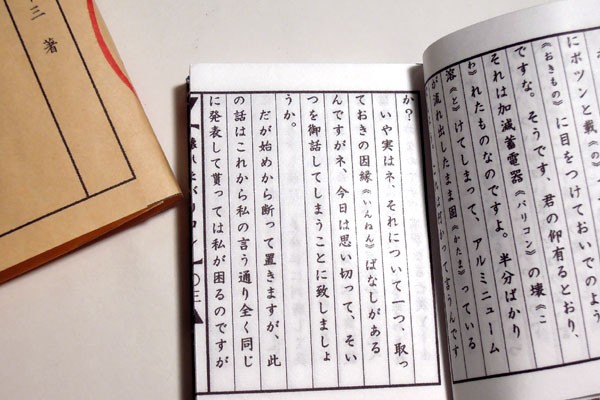 にポツンと載《の
《おきもの》に目をつけておいでのよう
ですな。そうです、君の仰有るとおり、
それは加減蓄電器《バリコン》の壊《こ
わ》れたものなのですよ。半分ばかり
溶《と》けてしまって、アルミニューム
が流れ出したまま固《かたま》っている
って言うんです
か？
いや実はネ、それについて一つ、取っ
ておきの因縁《いんねん》ばなしがある
んですがネ、今日は思い切って、そい
つを御話してしまうことに致しましょ
うか。
だが始めから断って置きますが、此
の話はこれから私の言う通り全く同じ
に発表して貰っては私が困るのですが
【壊れたバリコン】〇三
三 著